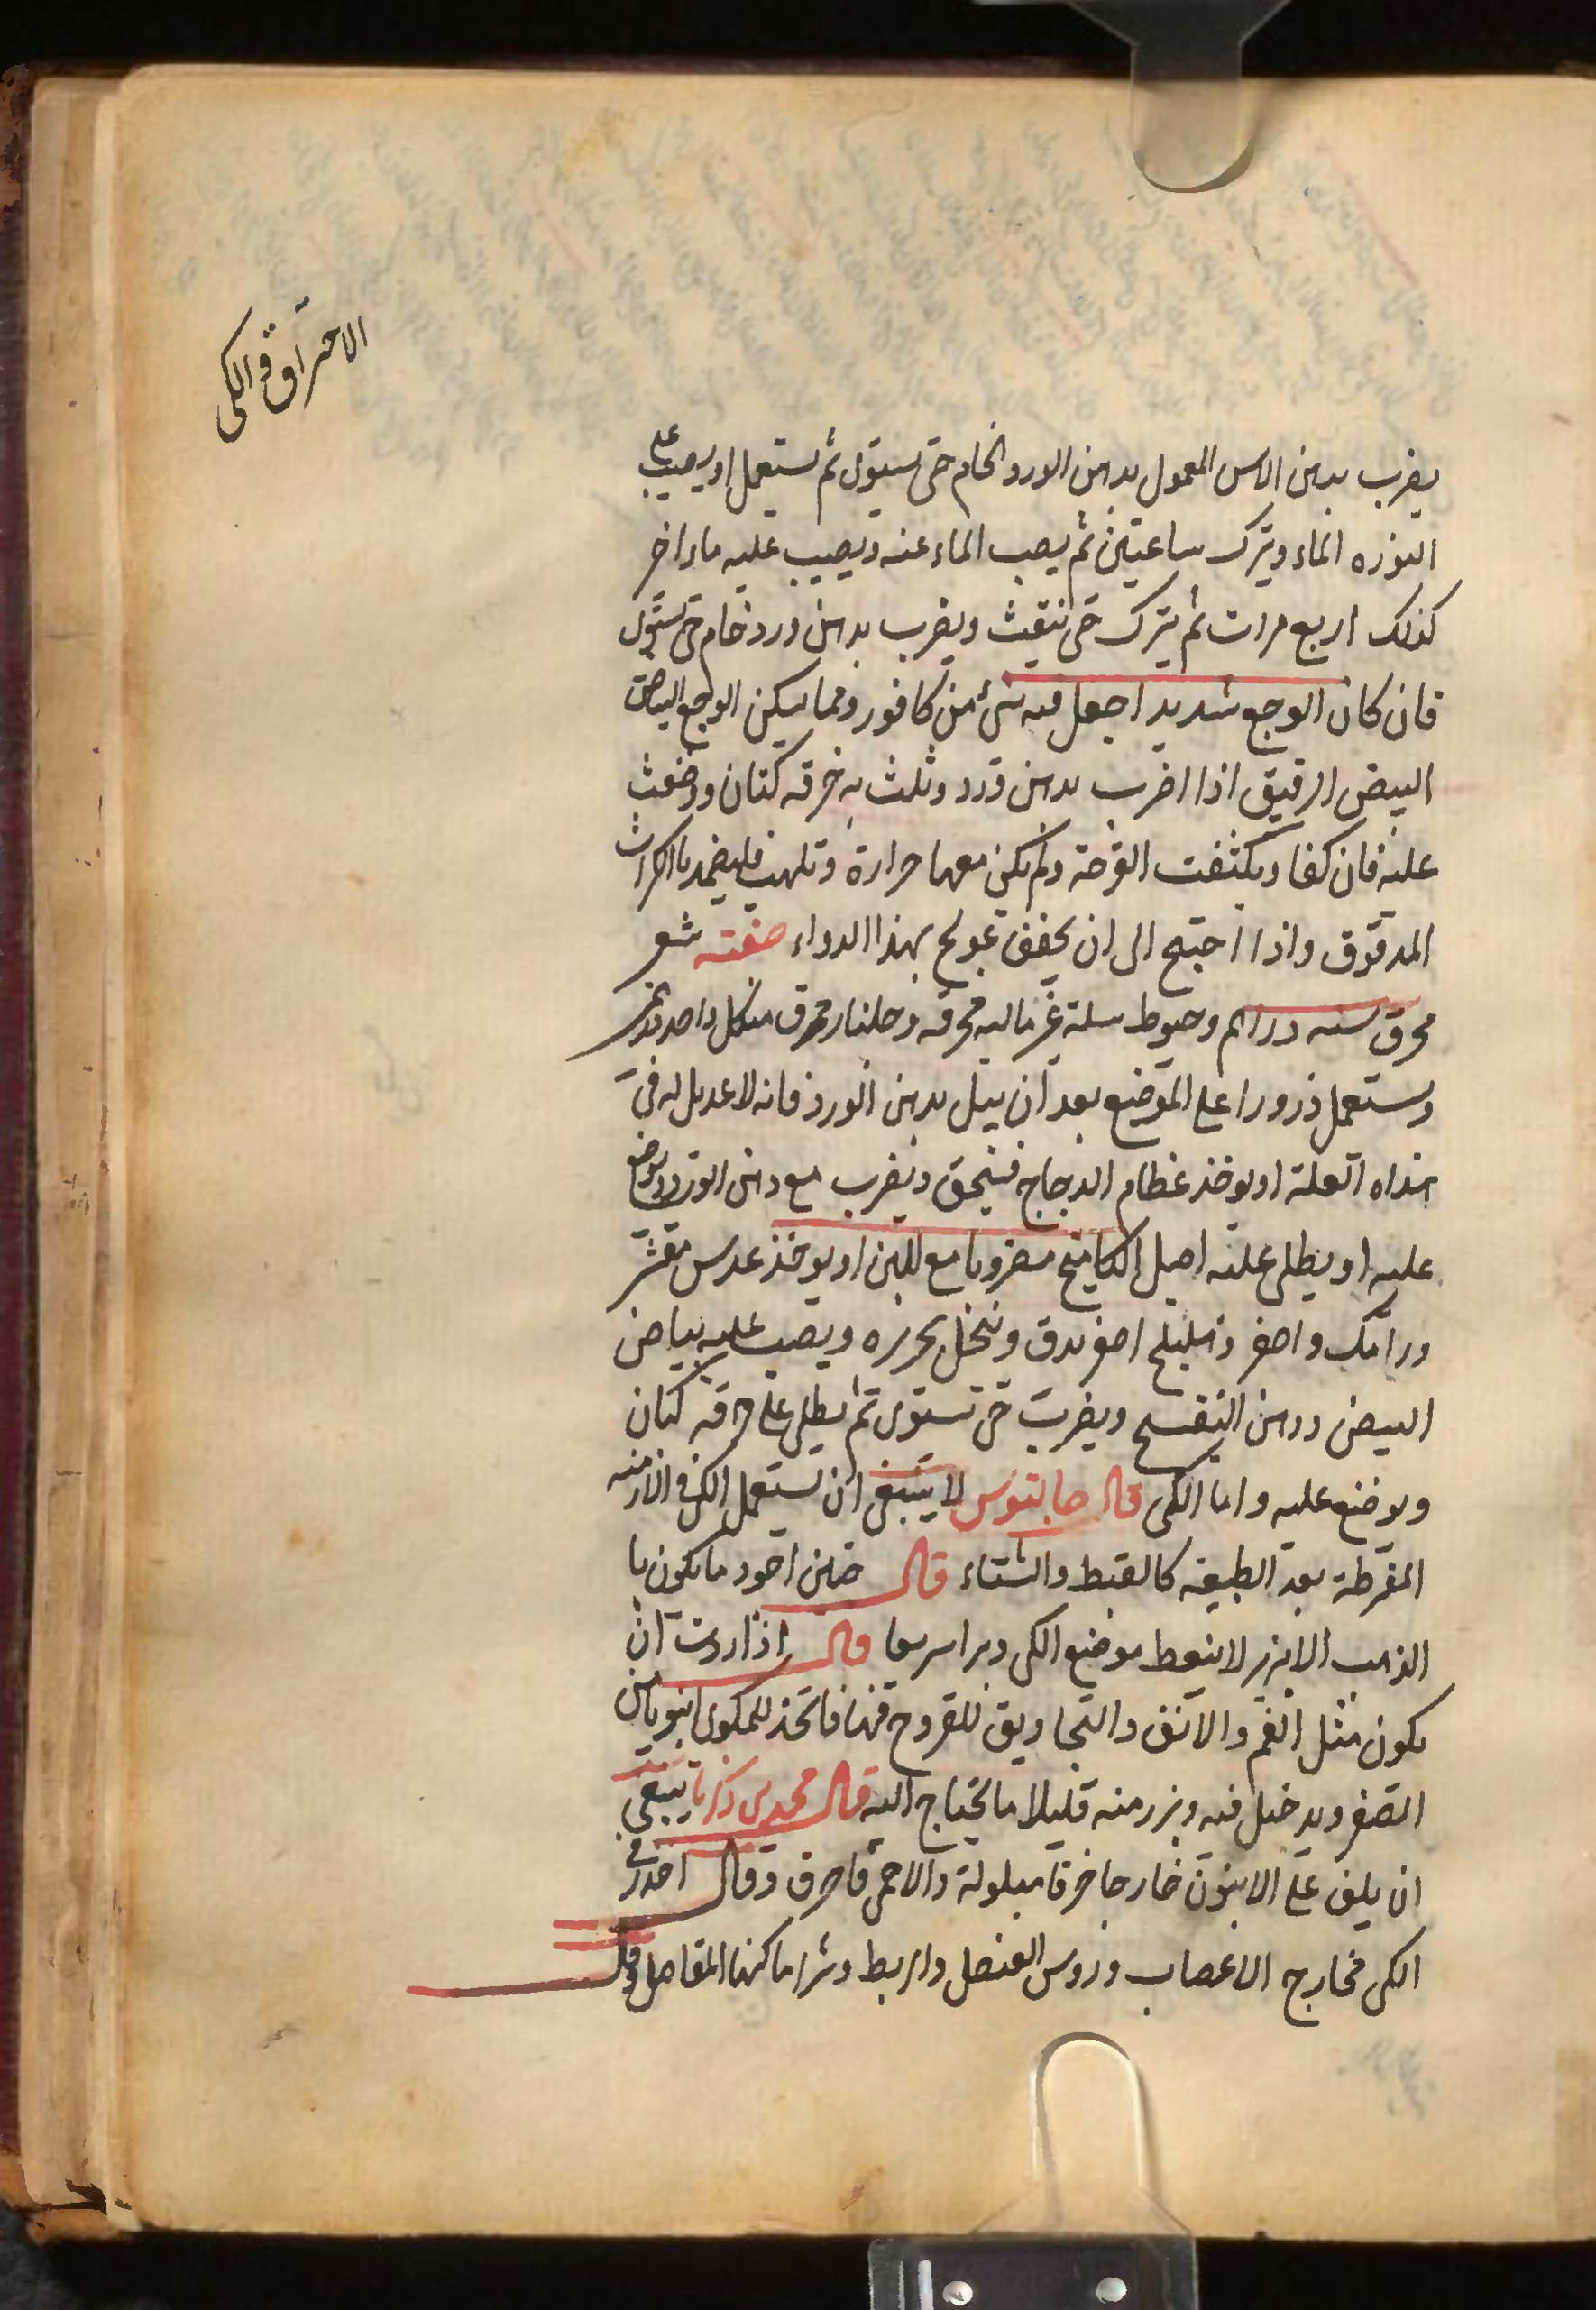 الاحتراق والكى
يضرب بدهن الاس المعمول بدهن الورد الخام حتى يستوى ثم يستعمل او يصب على
النوره الماء ويترك ساعتين ثم يصب الماء عنه ويصب عليه ماء اخر
كذلك اربع مرات ثم يترك حتى ويضرب بدهن ورد خام حتى يستوى
فان كان الوجع شديدا جعل فيه شئ من كافور ومما يسكن الوجع البياض
البيض الرقيق اذا اضرب بدهن ورد وثلث به خرقه كتان ووضعت
عليه فان كفا القرحة ولم يكن معها حرارة وتلهب فليضمد بالكراث
المدقوق واذا احتيج الى ان يجفف عولج بهذا الدواء صفته شعر
محرق سته دراهم وخيوط سلة محرقه وجلنار محرق من كل واحد
ويستعمل ذرورا على الموضع بعد ان يبل بدهن الورد فانه لا عديل له فى
هذاه العلة او يوخذ عظام الدجاج فيحق ويضرب مع دهن الورد ويوضع
عليه او يطلى عليه اصل مضروبا مع اللبن او يوخذ عدس مقشر
ورامك واصفر وهليلج اصفر يدق وينخل بحريره ويصب عليه بياض
البيض ودهن البنفسج ويضرب حتى تستوى ثم يطلى على خرقه كتان
ويوضع عليه واما الكى قال جالينوس لا ينبغى ان يستعمل الكى فى الازمنه
المفرطة بعد الطبيعه كالقيظ والشتاء قال حنين اجود ما يكون با
الذهب الابريز لا ينفط موضع الكى ويبرا سريعا قال اذا اردت ان
يكون مثل الفم والانف والتجاويف للقروح فيها فاتخذ للمكوى انبوبا من
الصفر ويدخل فيه ويزر منه قليلا ما يحتاج اليه قال محمد بن زكريا ينبغى
ان يلف على الانبوب خارجا خرقا مبلولة والا حمى فاحرق وقال احذر فى
الكى مخارج الاعصاب وروس العضل والربط وشر اماكنها المفاصل وقال